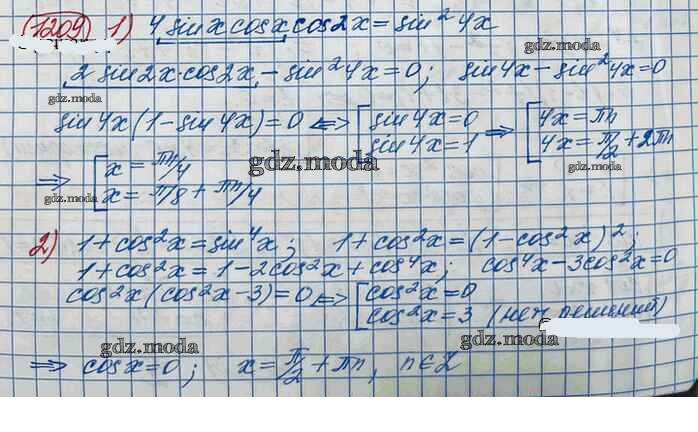 1209 1) 4 sin x cos x cos 2x = sin² 4x
2 sin 2x · cos 2x - sin² 4x = 0; sin 4x - sin² 4x = 0
sin 4x (1 - sin 4x) = 0 ⟺ [ sin 4x = 0 ⟹ [ 4x = πn
sin 4x = 1 4x = π/2 + 2πn
gdz.moda gdz.moda gdz.moda
⟹ [ x = πn/4
x = π/8 + πn/4
gdz.moda
2) 1 + cos² x = sin⁴ x; 1 + cos² x = (1 - cos² x)²;
1 + cos² x = 1 - 2cos² x + cos⁴ x; cos⁴ x - 3cos² x = 0
cos² x (cos² x - 3) = 0 ⟺ [ cos² x = 0
cos² x = 3 (нет решений)
gdz.moda gdz.moda
⟹ cos x = 0; x = π/2 + πn, n ∈ Z
gdz.moda